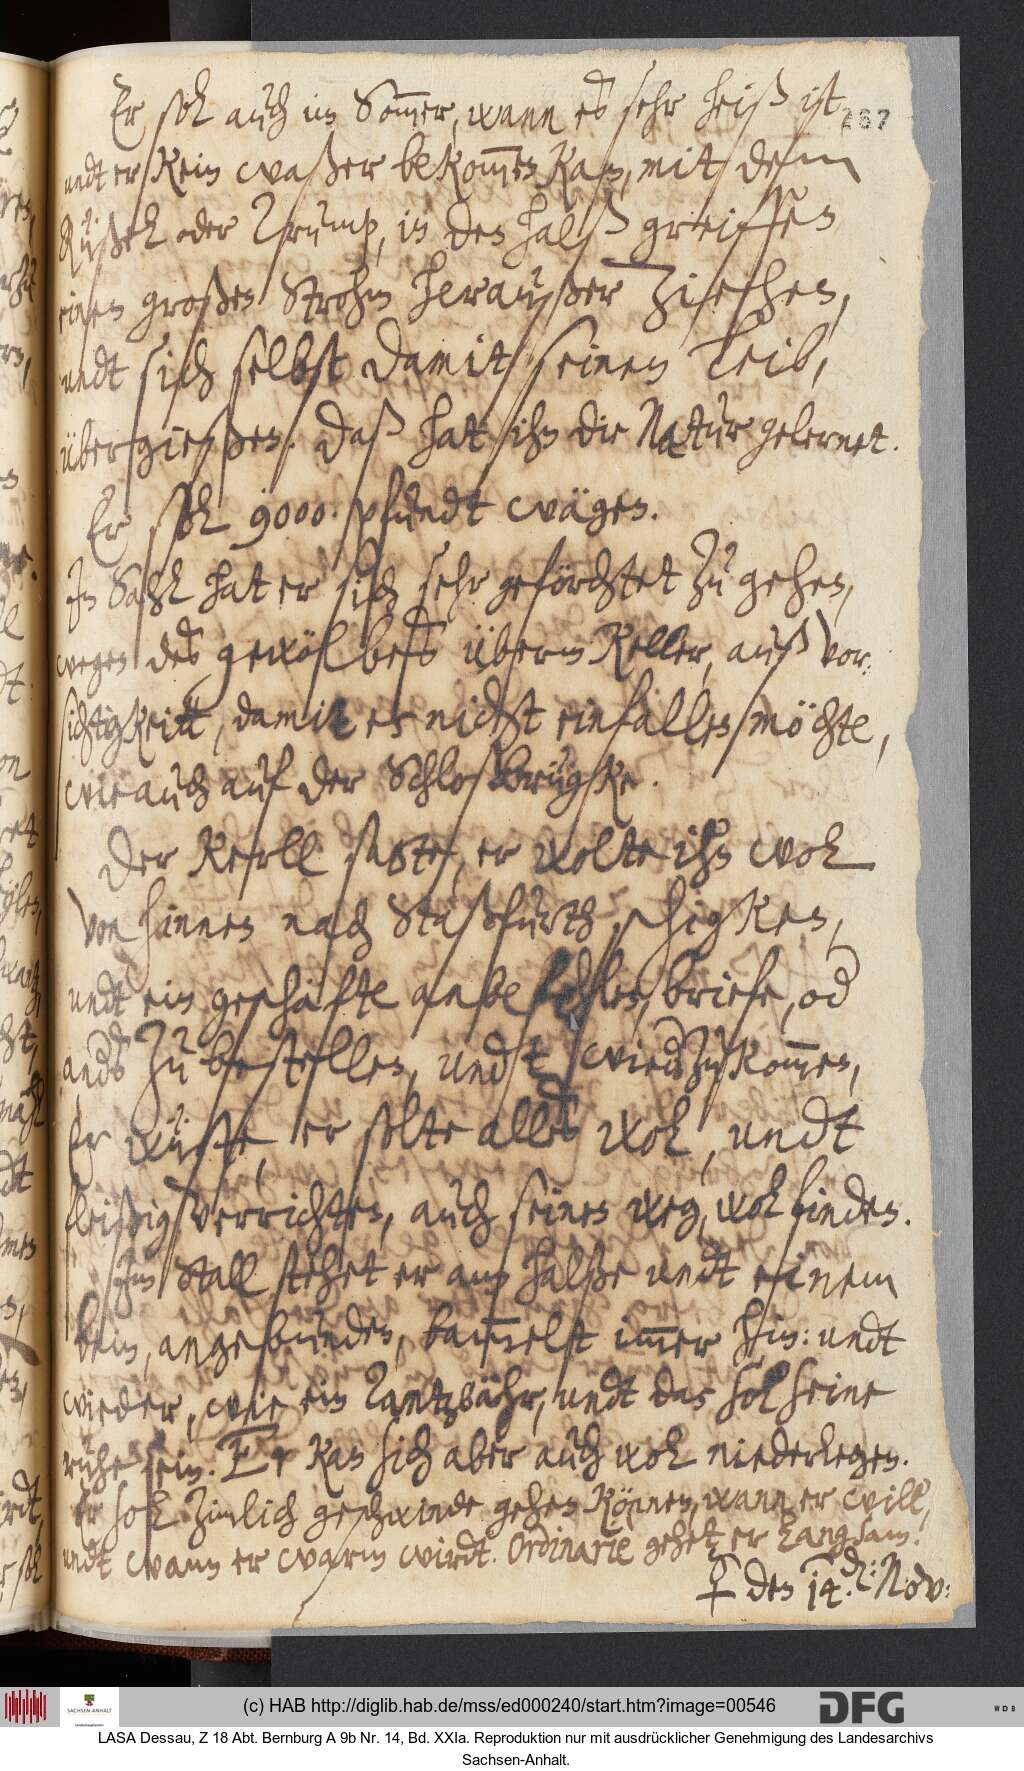 Er sol auch im Som̄er, wann es sehr heiß ist
267
undt er kein waßer bekom̄en kan, mit dem
Rüßel oder Trump, in den halß greiffen
einen großen Strohm heraußer ziehen,
undt sich selbst damit seinen Leib,
übergießen. Daß hat ihn die Natur gelernet.
Er sol 9000. pfundt wägen.
In Sahl hat er sich sehr geförchtet zu gehen,
wegen des gewölbes überm Keller, auß vor:
sichtigkeitt, damit er nicht einfallen möchte,
wie auch auf der Schloßbrügke.
Der Kerll sagte, er wolte ihn wol
von hinnen nach Staßfurth schigken,
undt ein geschäfte anbefehlen, briefe, od
ands zu bestellen, undt wied zu kom̄en,
Er wüste, er solte alles wol, undt
fleißig verrichten, auch seinen weg, wol finden.
Im Stall stehet er am halße undt einem
bein, angebunden, bam̄elt im̄er hin: undt
wieder, wie ein Tantzbähr, undt das sol seine
ruhe sein. Er kan sich aber auch wol niederlegen.
Er sol zimlich geschwinde gehen können, wann er will,
undt wann er warm wirdt. Ordinarie gehet er langsam.
♀ den 14. d: Nov:
(c) HAB http://diglib.hab.de/mss/ed000240/start.htm?image=00546
SACHSEN-ANHALT
DFG
WDB
LASA Dessau, Z 18 Abt. Bernburg A 9b Nr. 14, Bd. XXIa. Reproduktion nur mit ausdrücklicher Genehmigung des Landesarchivs
Sachsen-Anhalt.